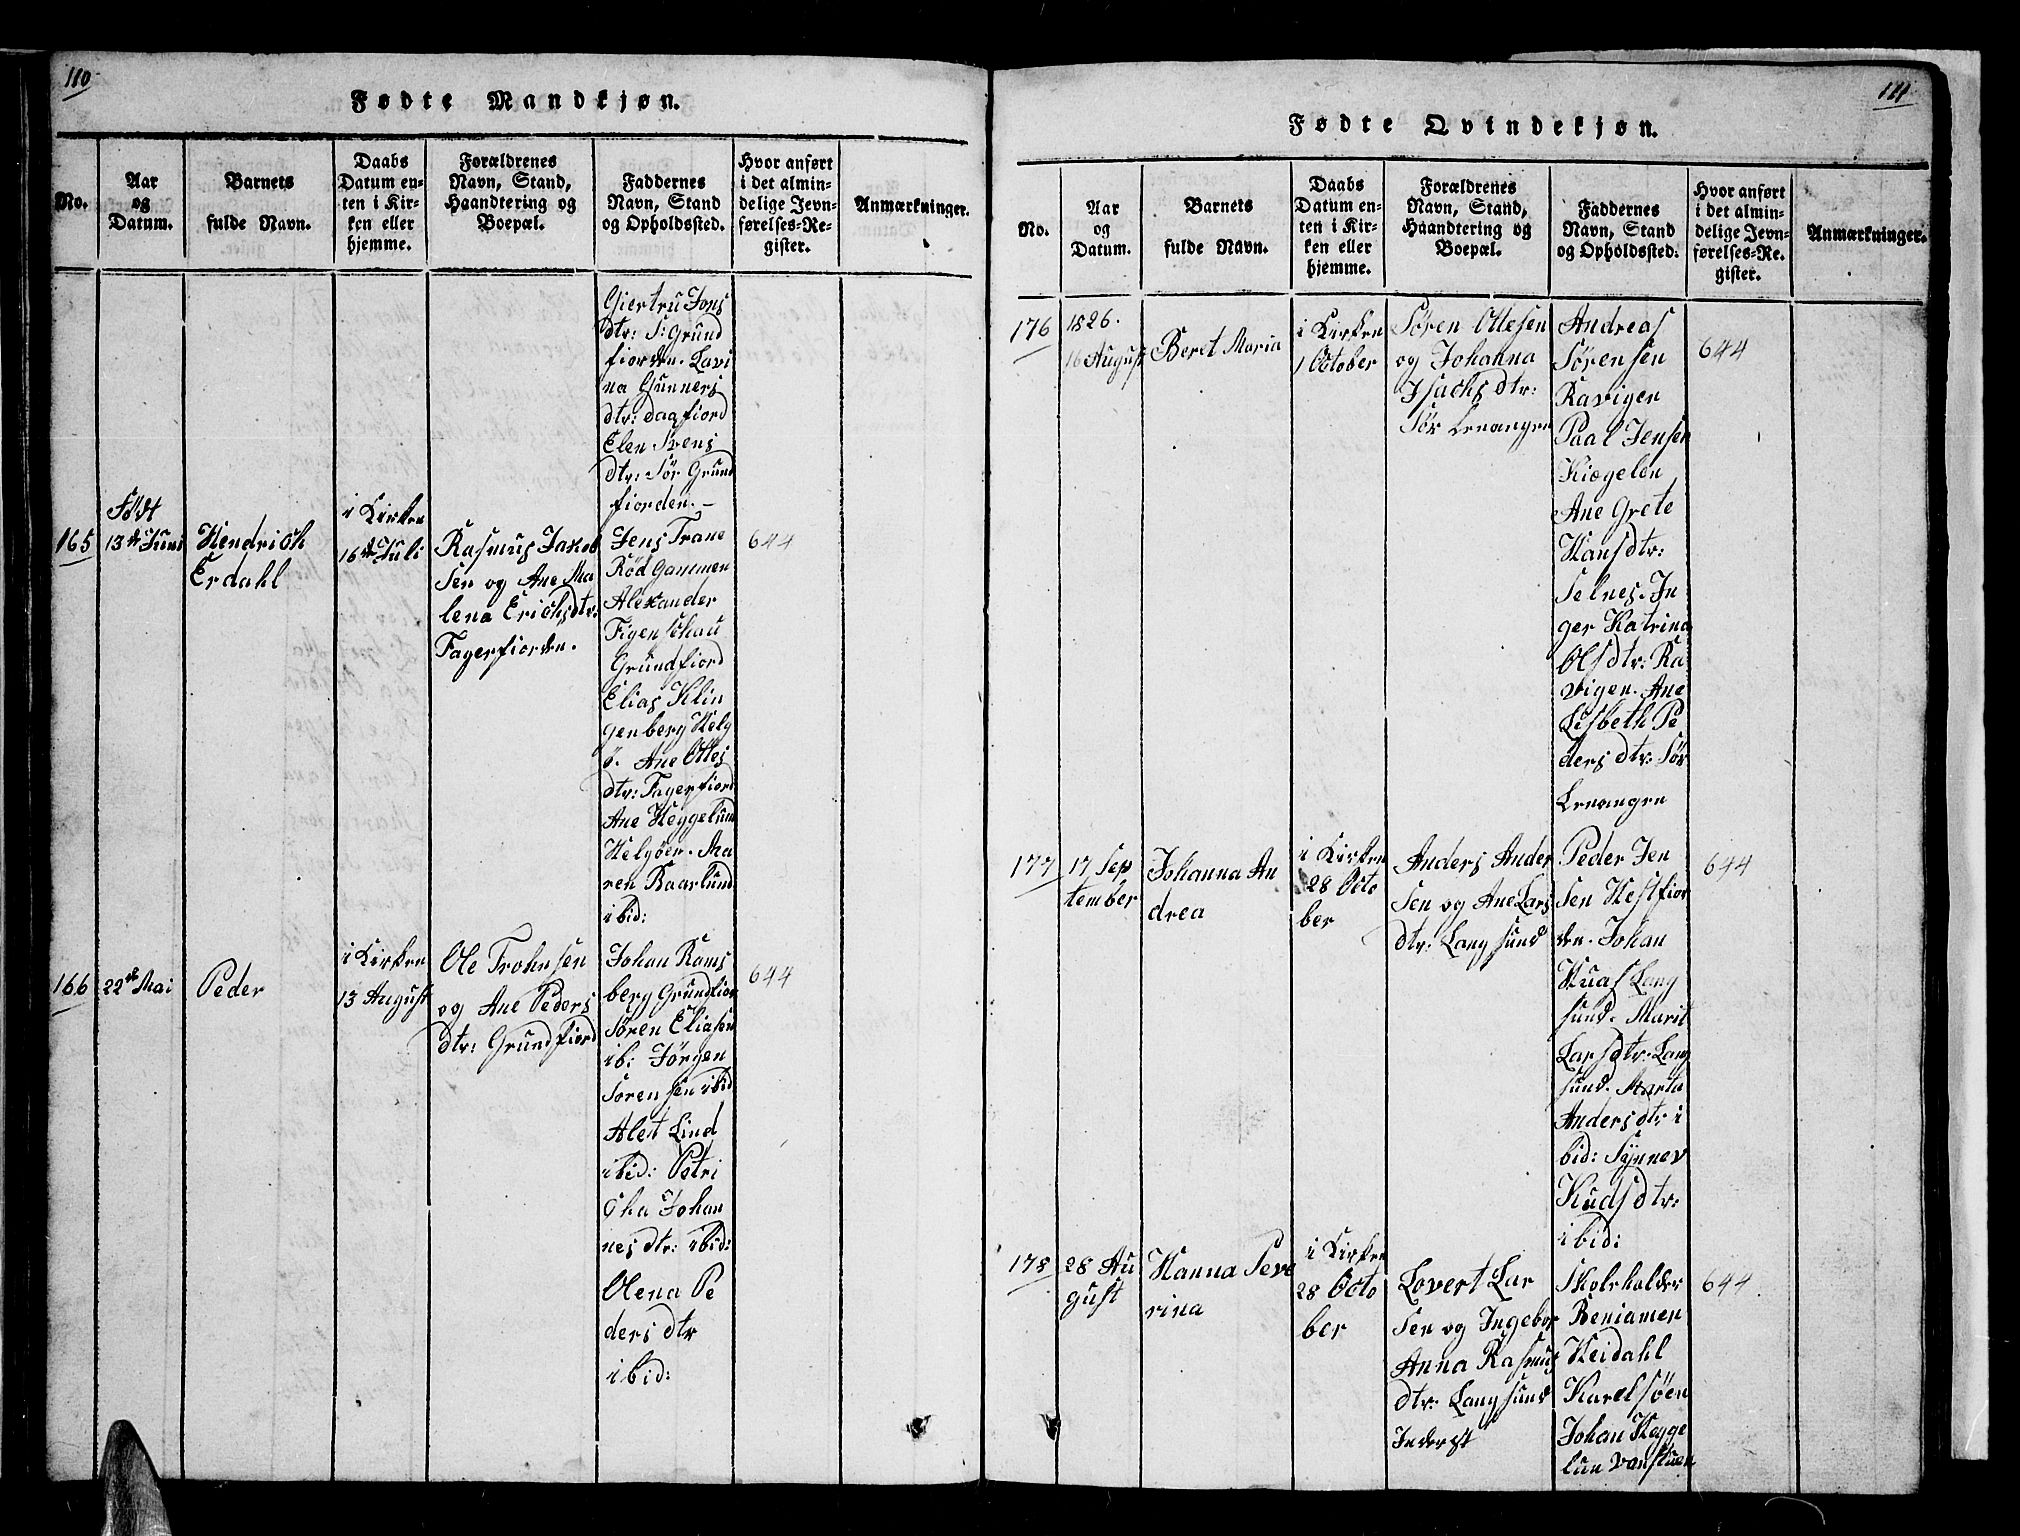 110
Fødte Mandkjøn.
No.
Aar
og
Datum.
Barnets
fulde Navn.
Daabs
Datum en-
ten i Kir-
ken eller
hjemme.
Forældrenes
Navn, Stand,
Haandtering og
Boepæl.
Faddernes
Navn, Stand
og Opholdssted.
Hvor anført
i det almin-
delige Jevn-
førelses-Re-
gister.
Anmærkninger.
Giertru Jons
dtr: S: Grund
fiorden. Lavi
na Gunners
dtr: Dagfiord
Elen Svens
dtr: Sør Grund
fiorden.
165
Født
13de Juni
Hendrich
Erdahl
i Kirken
16de Juli
Rasmus Jakob
sen og Ane Ma
lena Erichsdtr:
Fagerfiorden.
Jens Trane
Rød Gammen
Alexander
Figenschau
Grundfiord
Elias Klin
genberg Helg
ö. Ane Ottes
dtr: Fagerfiord
Ane Heggelund
Helgöen. Ma
ren Baarlund
ibid:
644
166
22de Mai
Peder
i Kirken
13 August
Ole Trohnsen
og Ane Peders
dtr: Grundfiord
Johan Rams
berg Grundfior
Sören Eliasen
ib: Jörgen
Sorensen ibid
Alet Lind
ibid: Petri
cha Johan
nesdtr: ibid:
Olena Pe
dersdtr
ibid:
644
111
Fødte Qvindekjøn.
No.
Aar
og
Datum.
Barnets
fulde Navn.
Daabs
Datum en-
ten i Kir-
ken eller
hjemme.
Forældrenes
Navn, Stand,
Haandtering og
Boepæl.
Faddernes
Navn, Stand
og Opholdssted.
Hvor anført
i det almin-
delige Jevn-
førelses-Re-
gister.
Anmærkninger.
176
1826.
16 August
Beret Maria
i Kirken
1 October
Sören Ottesen
og Johanna
Isachsdtr:
Sör Lenangen
Andreas
Sörensen
Ravigen
Paal Jensen
Kiegelen
Ane Grete
Hansdtr:
Selnes. In
ger Katrina
Olsdtr: Ra
vigen. Ane
Lisbeth Pe
dersdtr: Sör
Lenangen
644
177
17 Sep
tember
Johanna An
drea
i Kirken
28 Octo
ber
Anders Ander
sen og Ane Lars
dtr: Langsund
Peder Jen
sen Hestfior
den. Johan
Huas Lang
sund. Marit
Larsdtr: Lang
sund. Marta
Andersdtr i
bid: Synnev
Kudsdtr:
ibid:
644
178
28 Au
gust
Hanna Peve
rina
i Kirken
28 Octo
ber
Lovert Lar
sen og Ingebor
Anna Rasmus
dtr: Langsund
Inderst
Skoleholder
Beniamen
Heidahl
Karelsöen
Johan Hegge
lun Vanstuen
644